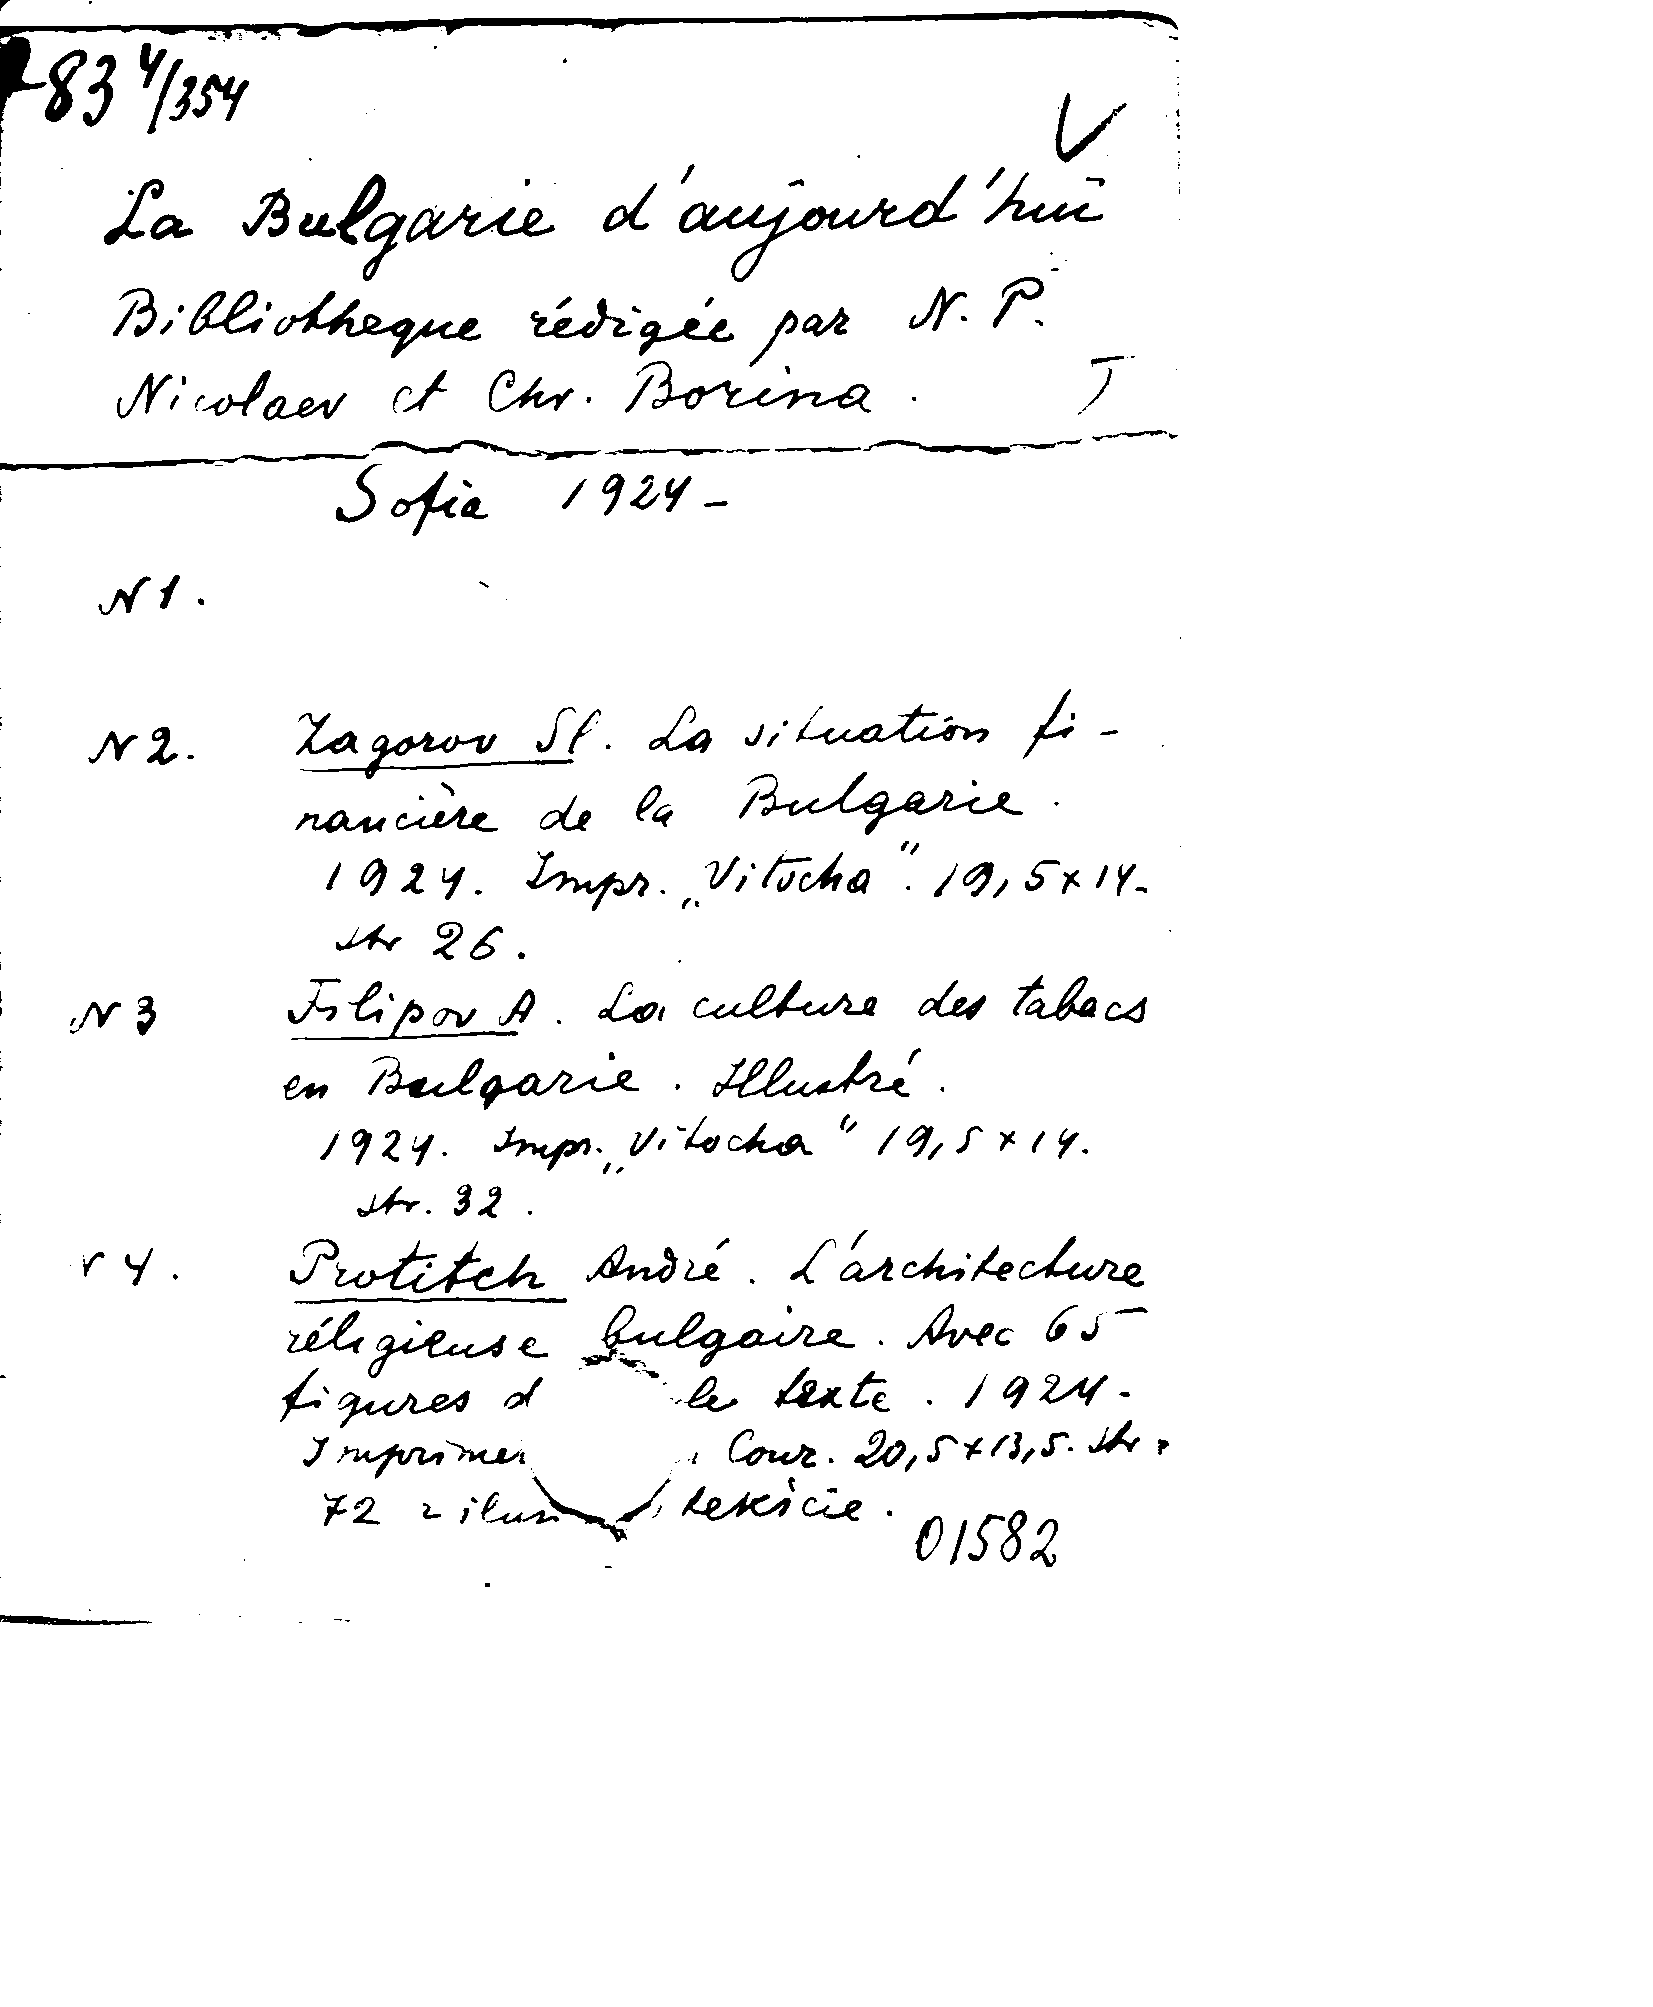 83 4/354
V
La Bulgarie d'aujourd'hui
Bibliotheque rédigée par N. P.
Nicolaev et Chr. Borina.
Sofia 1924-
N 1.
N 2. Zagorov Sl. La situation fi-
nancière de la Bulgarie.
1924. Impr. „Vitocha". 19,5x14.
str 26.
N 3 Filipov A. La culture des tabacs
en Bulgarie. Illustré.
1924. Impr. „Vitocha" 19,5x14.
str. 32.
N 4. Protitch André. L'architecture
réligieuse bulgaire. Avec 65
figures d le texte. 1924.
Imprimer Cour. 20,5x13,5. str.
72 z ilus tekście.
01582